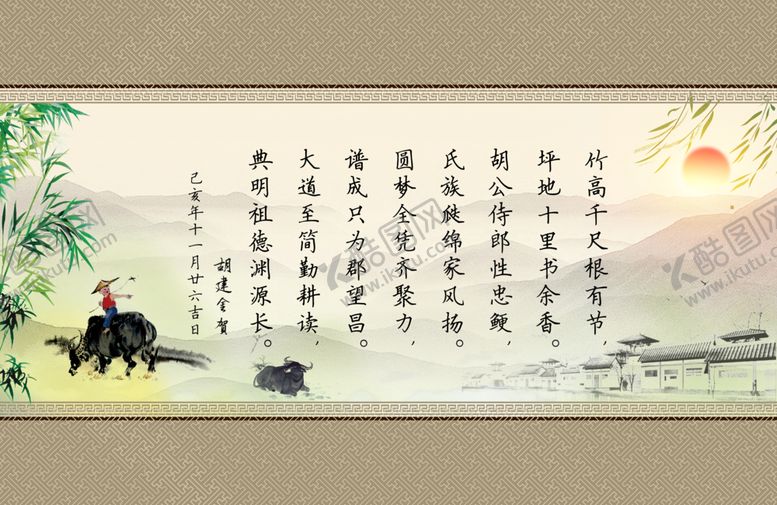 竹高千尺根有节，
坪地十里书余香。
胡公侍郎性忠鲠，
氏族继绵家风扬。
圆梦全凭齐聚力，
谱成只为郡望昌。
大道至简勤耕读，
典明祖德渊源长。
胡建金贺
己亥年十一月廿六吉日
酷图网
www.ikutu.com
酷图网
www.ikutu.com